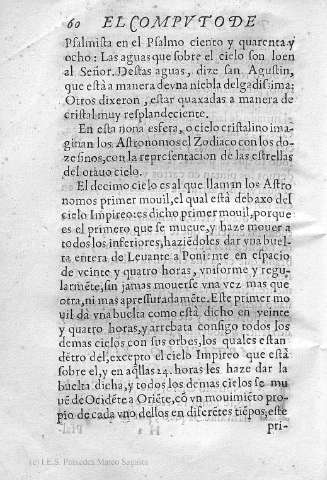 60 EL COMPVTO DE
Psalmista en el Psalmo ciento y quarenta y
ocho: Las aguas que sobre el cielo son loen
al Señor. Destas aguas, dize san Agustin,
que està a manera de vna niebla delgadissima:
Otros dixeron, estar quaxadas a manera de
cristal muy resplandeciente.
En esta nona esfera, o cielo cristalino ima-
ginan los Astronomos el Zodiaco con los do-
ze sinos, con la representacion de las estrellas
del otauo cielo.
El decimo cielo es al que llaman los Astro
nomos primer mouil, el qual està debaxo del
cielo Impireo: es dicho primer mouil, porque
es el primero que se mueue, y haze mouer a
todos los inferiores, haziẽdoles dar vna buel-
ta entera de Leuante a Poniẽte en espacio
de veinte y quatro horas, vniforme y regu-
larmẽte, sin jamas mouerse vna vez mas que
otra, ni mas apressuradamẽte. Este primer mo
uil dà vna buelta como està dicho en veinte
y quatro horas, y arrebata consigo todos los
demas cielos con sus orbes, los quales estan
dẽtro del, excepto el cielo Impireo que està
sobre el, y en aq̃llas 24. horas les haze dar la
buelta dicha, y todos los demas cielos se mu
uẽ de Ocidẽte a Oriẽte, cõ vn mouimiẽto pro
pio de cada vno dellos en diferẽtes tiẽpos, este
pri-
(c) I.E.S. Práxedes Mateo Sagasta